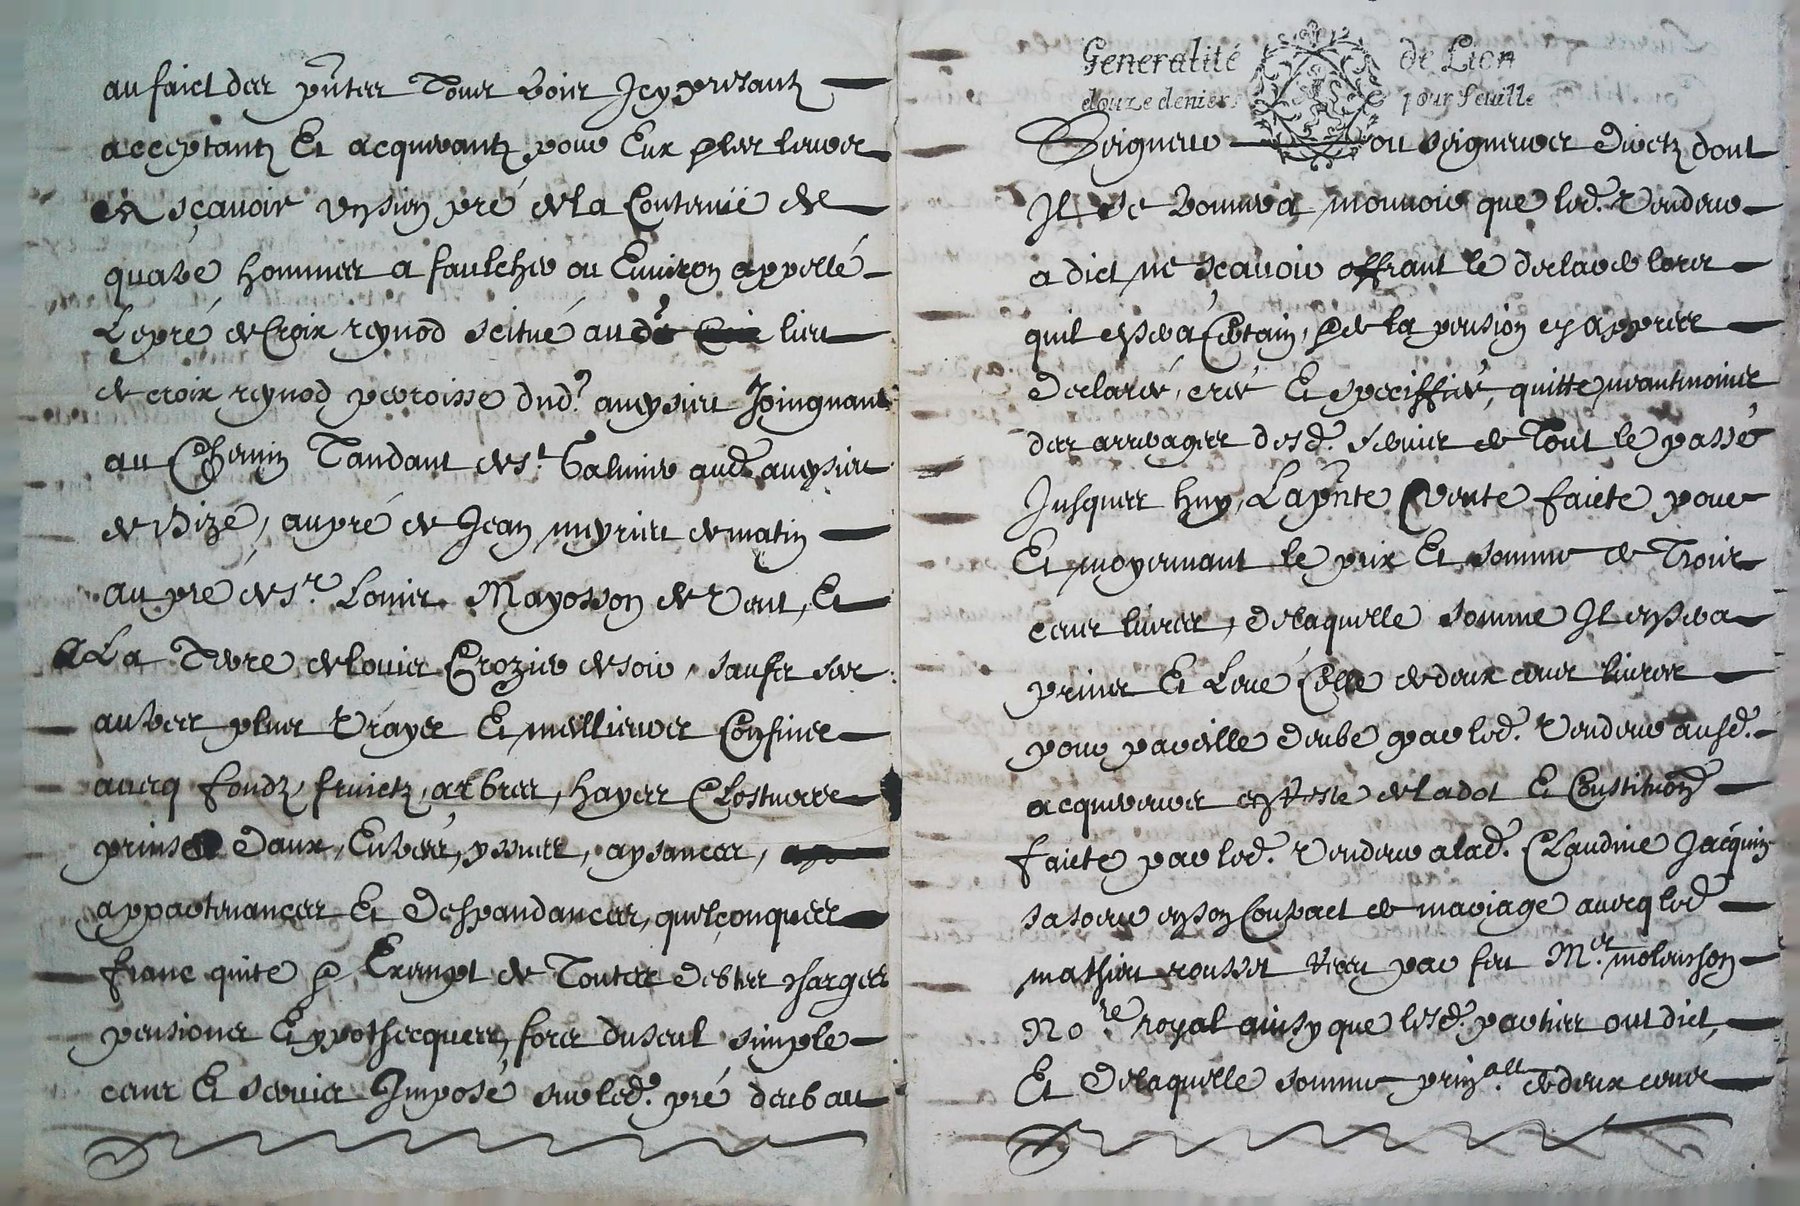 au faict des pntes Tous Voirs Icy presantz
acceptantz Et acquerantz pour Eux & les leurs
en sçavoir Ung sien pré de la Contenüe de
quatre hommes a faulcher ou Environ appellé
Le pré de Croix reynod scitué aud. lieu
de croix reynod parroisse dud. aveysieu Joingnant
au Chemin Tandant de st Galmier aud. aveysieu
de bize, au pré de Jean meyrieu de matin
au pré de sr. Louis Mayosson de Vent, Et
A La Terre de louis Crozier de soir, saufz ses
autres plus Vrayes Et meillieures Confins
avecq fondz, fruictz, arbres, hayes Clostures
prinse daux, Entrées, yssues, aysances,
appartenances Et Despandances, quelçonques
franc quite & Exempt de Toutes debtes charges
pensions Et ypothecques, fors du seul simple
cens Et servis Imposé sur led. pré deub au
Generalité de Lion
douze deniers pour feuille
Seigneur ou seigneurs directz dont
Il se Trouvera mouvoir que led. Vendeur
a dict ne sçavoir offrant le declarer lors
quil en sera Certain, & de la pension cy appres
declarée, crée Et speciffiée, quitte neantmoins
des arreages desd. servis de Tout le passé
Jusques huy, La pnte Vente faicte pour
Et moyennant le prix Et somme de Trois
cens livres, de laquelle somme Il en sera
prins Et Levé Celle de deux cens livres
pour pareille deube par led. Vendeur ausd.
acquereurs en reste de la dot Et Constitution
faicte par led. Vendeur a lad. Claudine Jacquin
sa soeur en son Contract de mariage avecq led.
mathieu rousset receu par feu Me. moleusson
Nore. royal ainsy que lesd. parties ont dict,
Et de laquelle somme prin.alle de deux cens